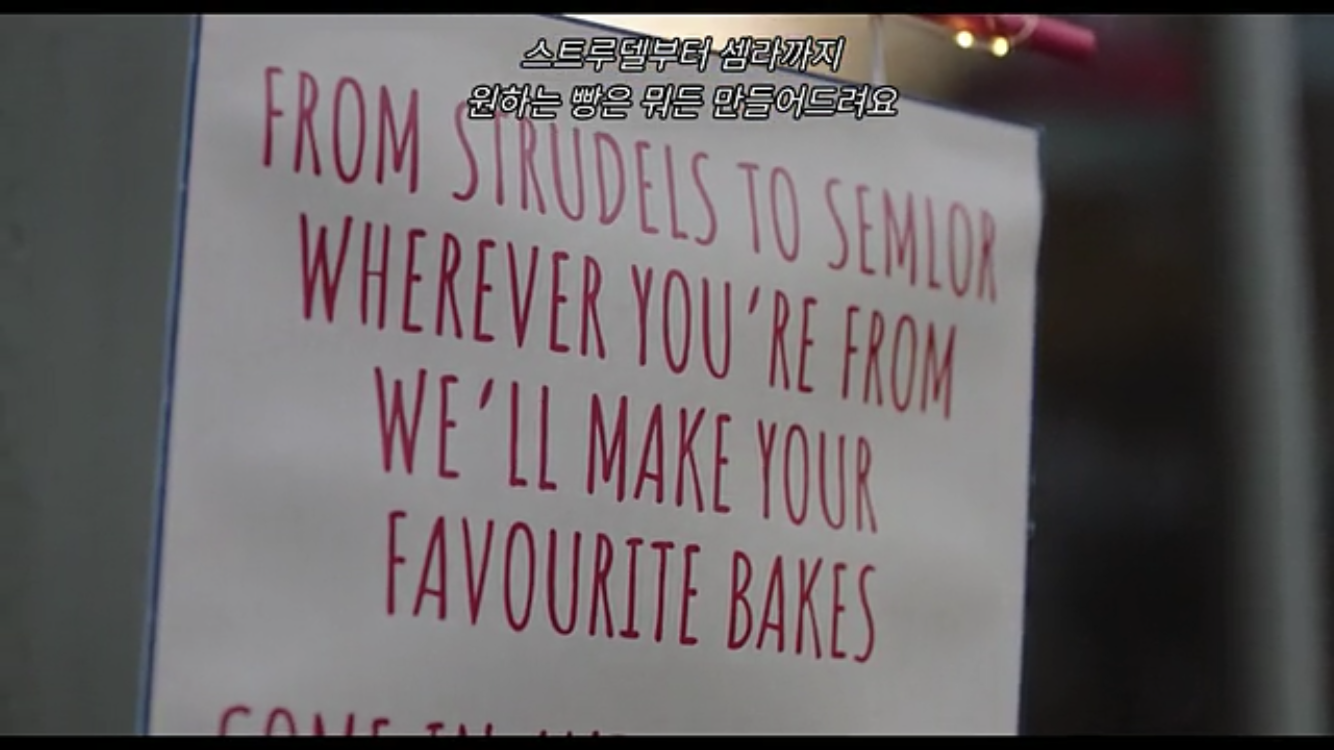 스트루델부터 셈라까지
원하는 빵은 뭐든 만들어드려요
FROM STRUDELS TO SEMLOR
WHEREVER YOU'RE FROM
WE'LL MAKE YOUR
FAVOURITE BAKES
COME IN